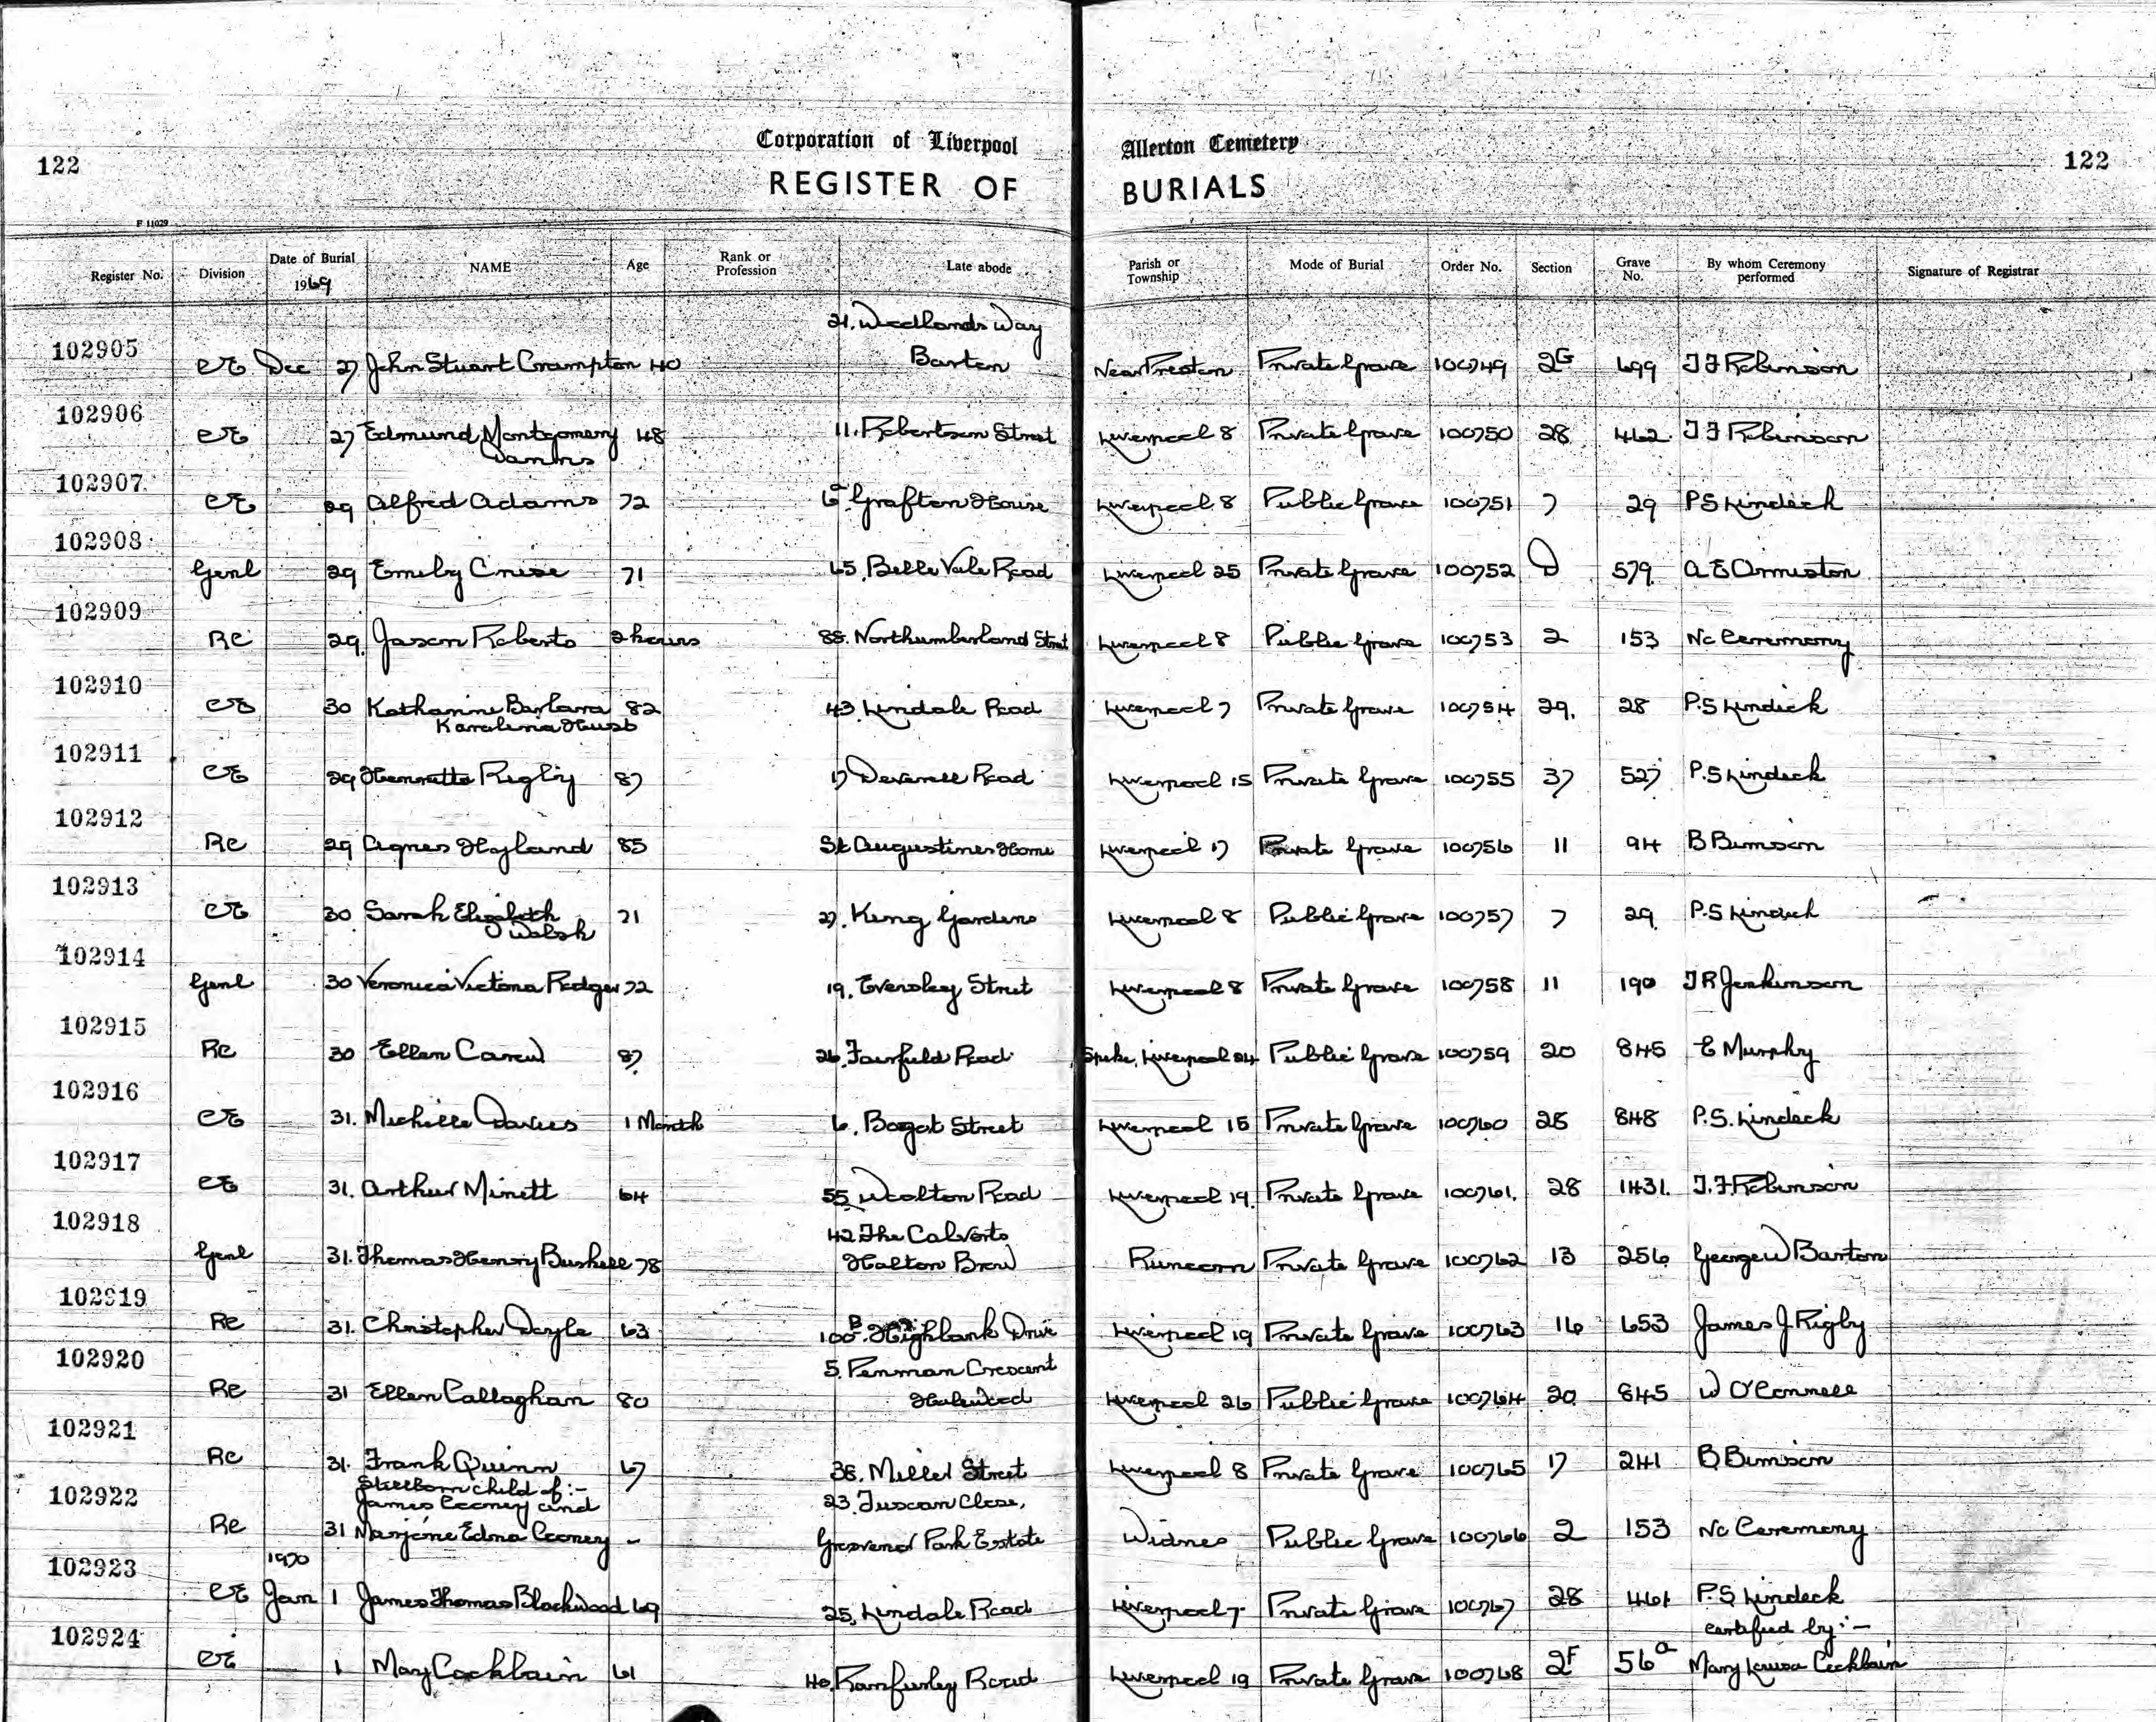 Corporation of Liverpool Allerton Cemetery
122 REGISTER OF BURIALS 122
F 11029
Register No. Division Date of Burial 1969 NAME Age Rank or Profession Late abode Parish or Township Mode of Burial Order No. Section Grave No. By whom Ceremony performed Signature of Registrar
21. Woodlands Way
102905 CE Dec 27 John Stuart Crampton 40 Barton Near Preston Private Grave 100749 2G 699 J F Robinson
102906 CE 27 Edmund Montgomery 48 11. Robertson Street Liverpool 8 Private Grave 100750 28 462 J F Robinson
102907 CE 29 Alfred Adams 72 Grafton House Liverpool 8 Public Grave 100751 7 29 P S Lindeck
102908 Genl 29 Emily Cruse 71 65. Belle Vale Road Liverpool 25 Private Grave 100752 D 579 A E Ormiston
102909 RC 29. Jason Roberts 2 hours 88. Northumberland Street Liverpool 8 Public Grave 100753 2 153 No Ceremony
102910 CE 30 Katharine Barbara 82 43 Lindale Road Liverpool 7 Private Grave 100754 29. 28 P.S Lindeck
Karolina
102911 CE 29 Henrietta Rigby 87 17 Deverell Road Liverpool 15 Private Grave 100755 37 527 P.S Lindeck
102912 RC 29 Agnes Hyland 85 St Augustines Home Liverpool 17 Private Grave 100756 11 94 B Bimson
102913 CE 30 Sarah Elizabeth 71 27. King Gardens Liverpool 8 Public Grave 100757 7 29 P.S Lindeck
Walsh
102914 Genl 30 Veronica Victoria Redger 72 19. Eversley Street Liverpool 8 Private Grave 100758 11 190 J R Jenkinson
102915 RC 30 Ellen Carew 87 26. Fairfield Road Speke, Liverpool 24 Public Grave 100759 20 845 E Murphy
102916 CE 31. Michelle Davies 1 Month 6. Bagot Street Liverpool 15 Private Grave 100760 28 848 P.S. Lindeck
102917 CE 31. Arthur Minett 64 55 Woolton Road Liverpool 19. Private Grave 100761. 28 1431. J. F Robinson
42 The Calverts
102918 Genl 31. Thomas Henry Bushell 78 Halton Brow Runcorn Private Grave 100762 13 256 George W Barton
102919 RC 31. Christopher Doyle 63 100B. Highbank Drive Liverpool 19 Private Grave 100763 16 653 James J Rigby
5. Penman Crescent
102920 RC 31 Ellen Callaghan 80 Halewood Liverpool 26 Public Grave 100764 20 845 W O'Connell
102921 RC 31. Frank Quinn 67 38. Miller Street Liverpool 8 Private Grave 100765 17 241 B Bimson
Stillborn child of :-
James Cooney and 23. Tuscan Close,
102922 RC 31 Marjorie Edna Cooney - Grosvenor Park Estate Widnes Public Grave 100766 2 153 No Ceremony
1970
102923 CE Jan 1 James Thomas Blackwood 69 25. Lindale Road Liverpool 7. Private Grave 100767 28 461 P.S Lindeck
certified by :-
102924 CE 1 May Cockbain 61 40. Ranfurley Road Liverpool 19 Private Grave 100768 2F 56a Mary Louisa Cockbain